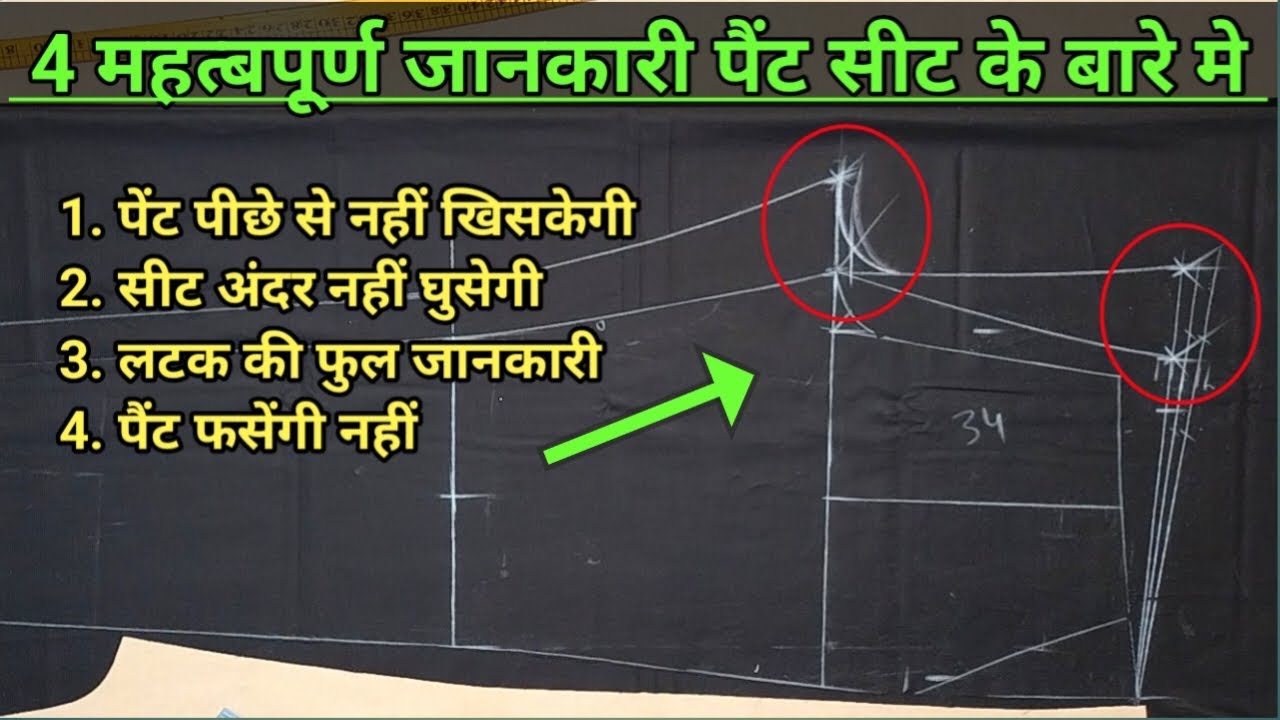 4 महत्बपूर्ण जानकारी पैंट सीट के बारे मे
1. पेंट पीछे से नहीं खिसकेगी
2. सीट अंदर नहीं घुसेगी
3. लटक की फुल जानकारी
4. पैंट फसेंगी नहीं
34